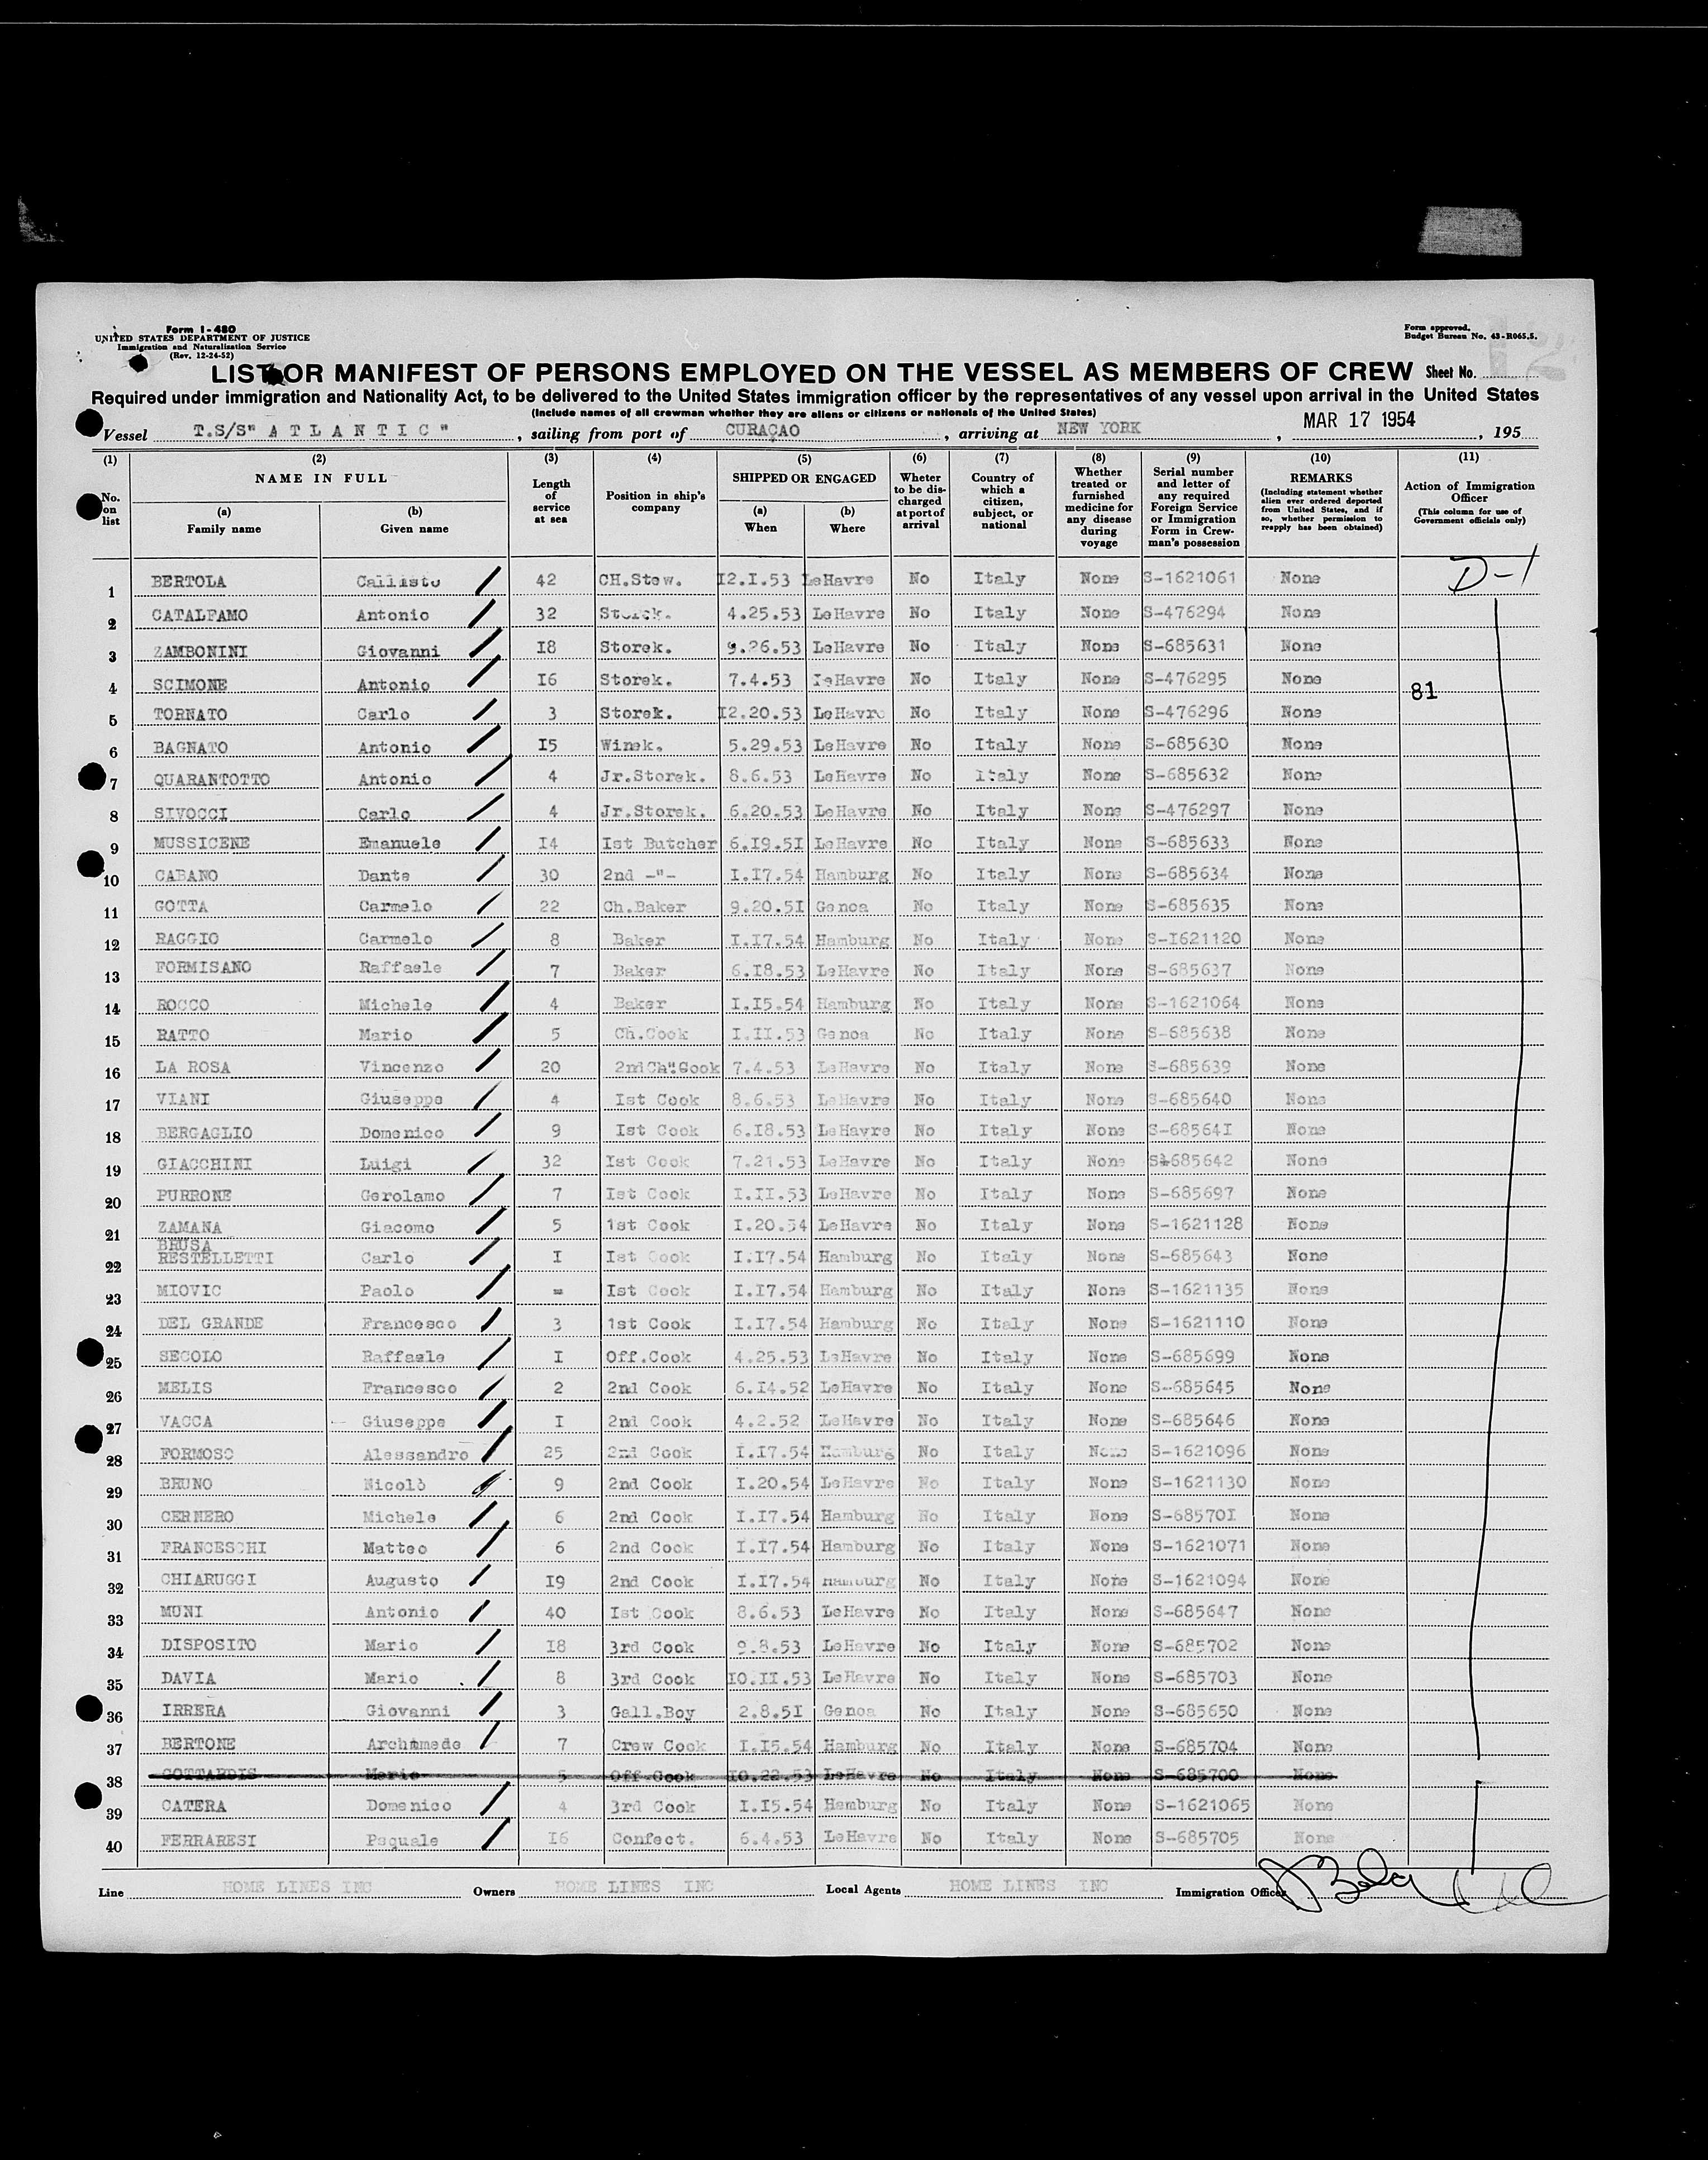 Form I-480
UNITED STATES DEPARTMENT OF JUSTICE
Immigration and Naturalization Service
(Rev. 12-24-52)
Form approved.
Budget Bureau No. 43-R065.5.
LIST OR MANIFEST OF PERSONS EMPLOYED ON THE VESSEL AS MEMBERS OF CREW Sheet No.
Required under immigration and Nationality Act, to be delivered to the United States immigration officer by the representatives of any vessel upon arrival in the United States
(Include names of all crewman whether they are aliens or citizens or nationals of the United States)
Vessel T.S/S" A T L A N T I C " , sailing from port of CURAÇAO , arriving at NEW YORK , MAR 17 1954 , 195
(1) (2) (3) (4) (5) (6) (7) (8) (9) (10) (11)
No. on list
NAME IN FULL
(a) Family name
(b) Given name
Length of service at sea
Position in ship's company
SHIPPED OR ENGAGED
(a) When
(b) Where
Wheter to be discharged at port of arrival
Country of which a citizen, subject, or national
Whether treated or furnished medicine for any disease during voyage
Serial number and letter of any required Foreign Service or Immigration Form in Crewman's possession
REMARKS
(Including statement whether alien ever ordered deported from United States, and if so, whether permission to reapply has been obtained)
Action of Immigration Officer
(This column for use of Government officials only)
D-1
1 BERTOLA Callisto 42 CH.Stew. I2.I.53 LeHavre No Italy None S-1621061 None
2 CATALFAMO Antonio 32 Storek. 4.25.53 LeHavre No Italy None S-476294 None
3 ZAMBONINI Giovanni I8 Storek. 9.26.53 LeHavre No Italy None S-685631 None
4 SCIMONE Antonio I6 Storek. 7.4.53 LeHavre No Italy None S-476295 None 81
5 TORNATO Carlo 3 Storek. I2.20.53 LeHavre No Italy None S-476296 None
6 BAGNATO Antonio I5 Winek. 5.29.53 LeHavre No Italy None S-685630 None
7 QUARANTOTTO Antonio 4 Jr.Storek. 8.6.53 LeHavre No Italy None S-685632 None
8 SIVOCCI Carlo 4 Jr.Storek. 6.20.53 LeHavre No Italy None S-476297 None
9 MUSSICENE Emanuele I4 Ist Butcher 6.I9.5I LeHavre No Italy None S-685633 None
10 CABANO Dante 30 2nd -"- I.I7.54 Hamburg No Italy None S-685634 None
11 GOTTA Carmelo 22 Ch.Baker 9.20.5I Genoa No Italy None S-685635 None
12 RAGGIO Carmelo 8 Baker I.I7.54 Hamburg No Italy None S-I621120 None
13 FORMISANO Raffaele 7 Baker 6.I8.53 LeHavre No Italy None S-685637 None
14 ROCCO Michele 4 Baker I.I5.54 Hamburg No Italy None S-1621064 None
15 RATTO Mario 5 Ch.Cook I.II.53 Genoa No Italy None S-685638 None
16 LA ROSA Vincenzo 20 2ndCh".Cook 7.4.53 LeHavre No Italy None S-685639 None
17 VIANI Giuseppe 4 Ist Cook 8.6.53 LeHavre No Italy None S-685640 None
18 BERGAGLIO Domenico 9 Ist Cook 6.I8.53 LeHavre No Italy None S-68564I None
19 GIACCHINI Luigi 32 Ist Cook 7.21.53 LeHavre No Italy None S-685642 None
20 PURRONE Gerolamo 7 Ist Cook I.II.53 LeHavre No Italy None S-685697 None
21 ZAMANA Giacomo 5 1st Cook I.20.54 LeHavre No Italy None S-1621128 None
22 BRUSA RESTELLETTI Carlo I Ist Cook I.I7.54 Hamburg No Italy None S-685643 None
23 MIOVIC Paolo = Ist Cook I.I7.54 Hamburg No Italy None S-1621135 None
24 DEL GRANDE Francesco 3 1st Cook I.I7.54 Hamburg No Italy None S-1621110 None
25 SECOLO Raffaele I Off.Cook 4.25.53 LeHavre No Italy None S-685699 None
26 MELIS Francesco 2 2nd Cook 6.I4.52 LeHavre No Italy None S-685645 None
27 VACCA Giuseppe I 2nd Cook 4.2.52 LeHavre No Italy None S-685646 None
28 FORMOSO Alessandro 25 2nd Cook I.I7.54 Hamburg No Italy None S-1621096 None
29 BRUNO Nicolò 9 2nd Cook I.20.54 LeHavre No Italy None S-1621130 None
30 CERNERO Michele 6 2nd Cook I.I7.54 Hamburg No Italy None S-68570I None
31 FRANCESCHI Matteo 6 2nd Cook I.I7.54 Hamburg No Italy None S-1621071 None
32 CHIARUGGI Augusto I9 2nd Cook I.I7.54 Hamburg No Italy None S-1621094 None
33 MUNI Antonio 40 Ist Cook 8.6.53 LeHavre No Italy None S-685647 None
34 DISPOSITO Mario I8 3rd Cook 9.8.53 LeHavre No Italy None S-685702 None
35 DAVIA Mario 8 3rd Cook I0.II.53 LeHavre No Italy None S-685703 None
36 IRRERA Giovanni 3 Gall.Boy 2.8.5I Genoa No Italy None S-685650 None
37 BERTONE Archimede 7 Crew Cook I.I5.54 Hamburg No Italy None S-685704 None
38 GOTTARDIS Mario 5 Off.Cook I0.22.53 LeHavre No Italy None S-685700 None
39 CATERA Domenico 4 3rd Cook I.I5.54 Hamburg No Italy None S-1621065 None
40 FERRARESI Psquale I6 Confect. 6.4.53 LeHavre No Italy None S-685705 None
Line HOME LINES INC Owners HOME LINES INC Local Agents HOME LINES INC Immigration Officer